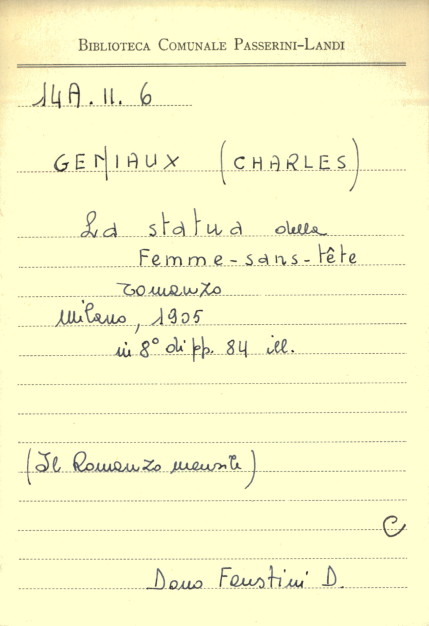 BIBLIOTECA COMUNALE PASSERINI-LANDI
14A. II. 6
GENIAUX (CHARLES)
La statua della
Femme-sans-tête
romanzo
Milano, 1905
in 8° di pp. 84 ill.
(Il Romanzo mensile)
C
Dono Faustini D.